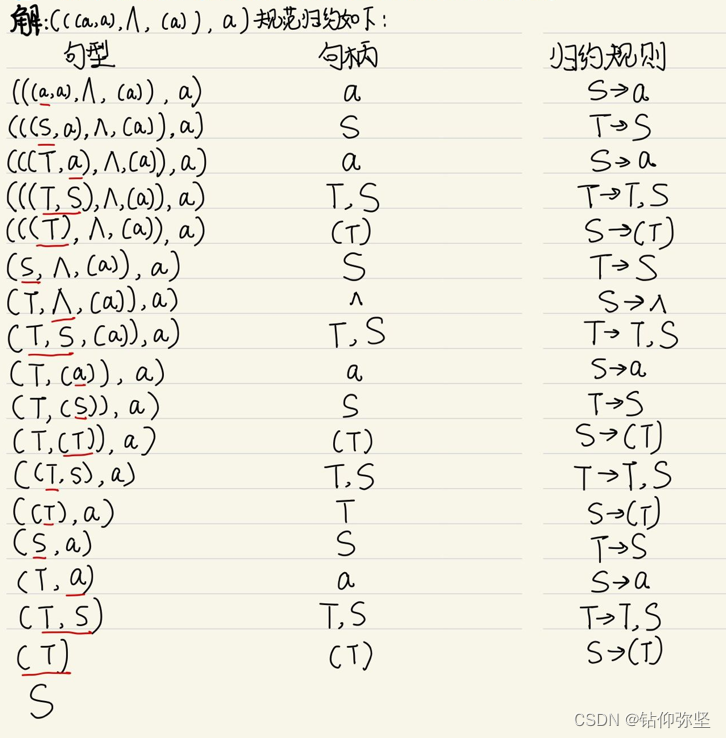 解:(((a,a),Λ,(a)),a)规范归约如下:
句型 句柄 归约规则
(((a,a),Λ,(a)),a) a S→a
(((S,a),Λ,(a)),a) S T→S
(((T,a),Λ,(a)),a) a S→a
(((T,S),Λ,(a)),a) T,S T→T,S
(((T),Λ,(a)),a) (T) S→(T)
(S,Λ,(a)),a) S T→S
(T,Λ,(a)),a) Λ S→Λ
(T,S,(a)),a) T,S T→T,S
(T,(a)),a) a S→a
(T,(S)),a) S T→S
(T,(T)),a) (T) S→(T)
((T,S),a) T,S T→T,S
((T),a) T S→(T)
(S,a) S T→S
(T,a) a S→a
(T,S) T,S T→T,S
(T) (T) S→(T)
S
CSDN @钻仰弥坚